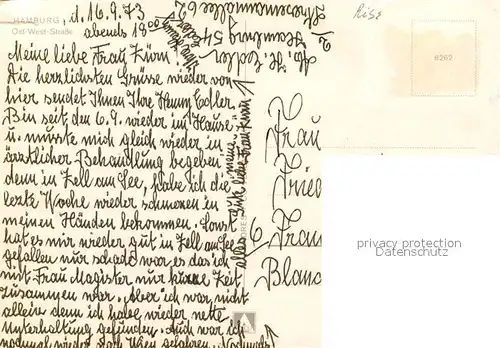 HAMBURG
Ost-West-Straße
, d. 16.9.73
abends 18 00
Meine liebe Frau Zürn!
Die herrlichsten Grüsse wieder von
hier sendet Ihnen Ihre Henny Eckler.
Bin seit den 6.9. wieder im Hause
u. musste mich gleich wieder in
ärztlicher Behandlung begeben
denn in Zell am See, habe ich die
letzte Woche wieder schmerzen in
meinen Händen bekommen. Sonst
hat es mir wieder gut in Zell am See
gefallen nur schade war es das ich
mit Frau Magister nur kurze Zeit
zusammen war. Aber ich war nicht
allein denn ich habe wieder nette
Unterhaltung gefunden. Auch war ich
nochmal wieder nach Wien gefahren. Nochmals
alles gute meine liebe Frau Zürn
2 Hamburg 54
Ihre Henny
Frau
Fried
Blanc
Rise
6262
privacy protection
DELCAMPE